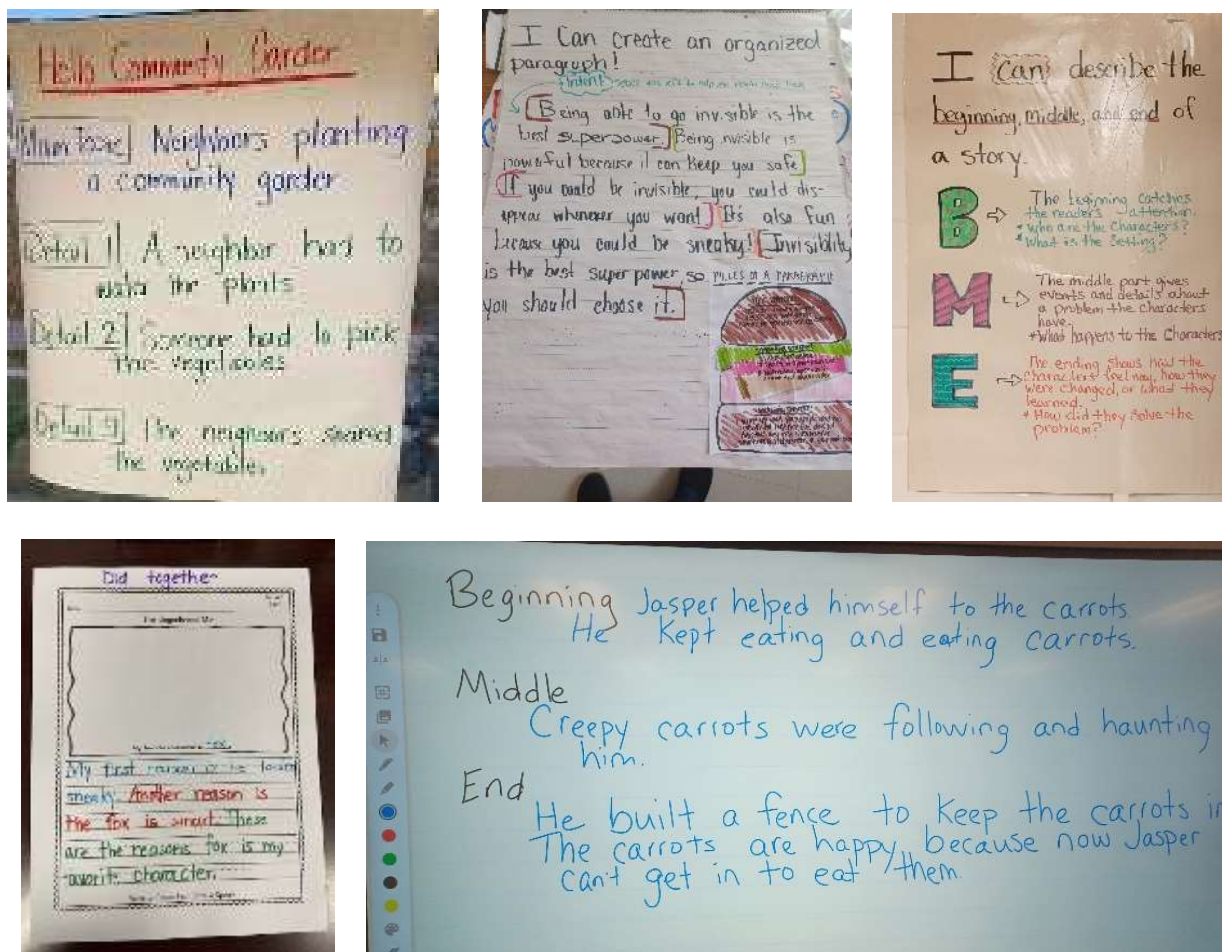 Hello Community Garder
Main Topic Neighbors planting
a community garder
Detail 1 A neighbor had to
water the plants
Detail 2 Someone had to pick
the vegetables
Detail 3 The neighbors shared
the vegetables
I Can create an organized
paragraph!
Indent
Being able to go invisible is the
best superpower. Being invisible is
powerful because it can keep you safe
If you could be invisible, you could dis-
appear whenever you want. It's also fun
because you could be sneaky! Invisiblity
is the best super power, so
you should choose it.
PIECES OF A PARAGRAPH
I can describe the
beginning, middle, and end of
a story.
B
The beginning catches
the readers attention.
* Who are the Characters?
* What is the Setting?
M
The middle part gives
events and details about
a problem the characters
have.
* What happens to the Characters
E
The ending shows how the
characters feel now, how they
were changed, or what they
learned.
* How did they solve the
problem?
Did together
My first reason is he looks
sneaky. Another reason is
the fox is smart. These
are the reasons fox is my
favorite character.
Beginning Jasper helped himself to the carrots.
He Kept eating and eating carrots.
Middle
Creepy carrots were following and haunting
him.
End
He built a fence to keep the carrots in
The carrots are happy because now Jasper
can't get in to eat them.